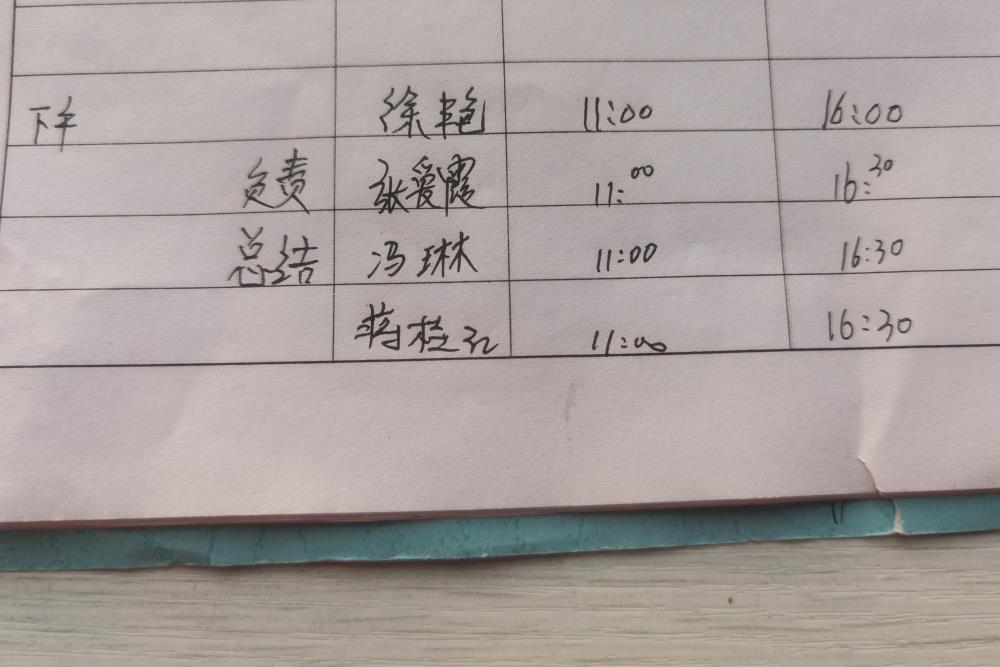 下午 徐艳 11:00 16:00
负责 张爱霞 11:00 16:30
总结 冯琳 11:00 16:30
蒋桂红 11:00 16:30